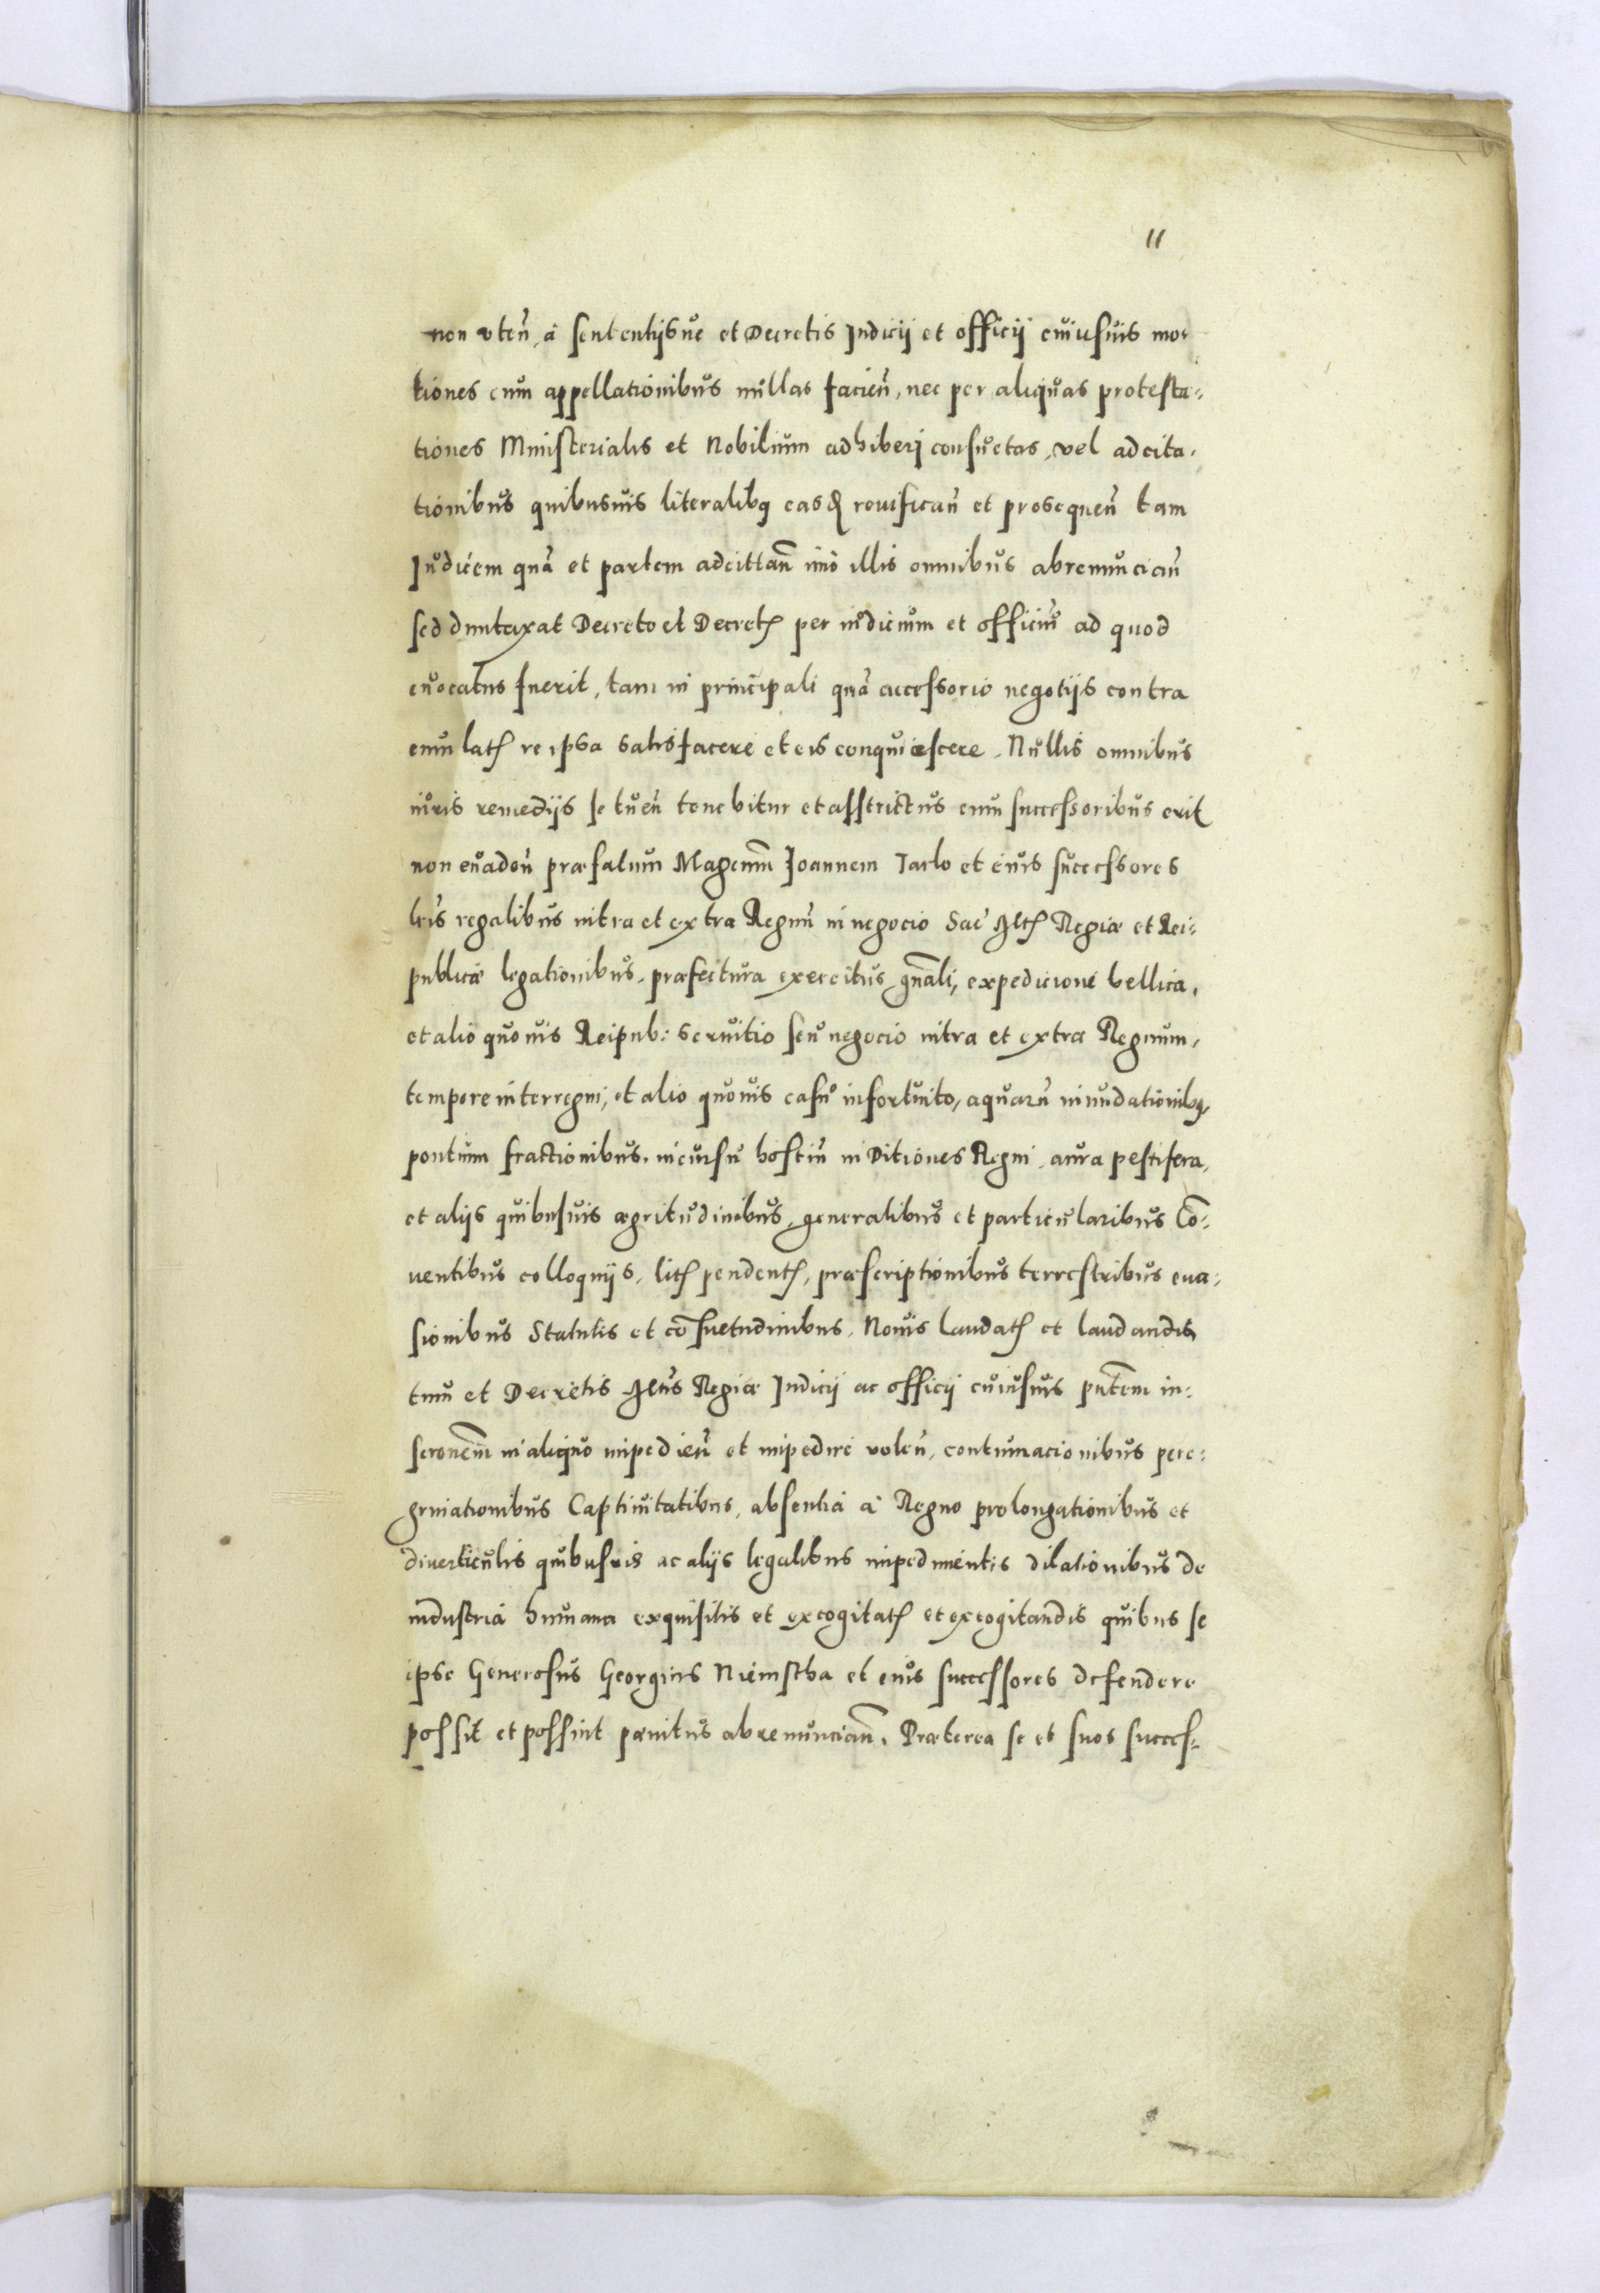 11
non uteñ, à sententijsue et Decretis Judicij et officij cuiusuis mo-
tiones cum appellationibus nullas facieñ, nec per aliquas protesta-
tiones Ministerialis et Nobilium adhiberi consuetas, vel adcita-
tionibus quibusuis literalibq easdẽ reuificañ et prosequeñ tam
Judicem quã et partem adcittañ imò illis omnibus abrenunciañ
sed duntaxat Decreto et Decretꝭ per iudicium et officiũ ad quod
euocatus fuerit, tam in principali quã accessorio negotijs contra
eum latꝭ re ipsa satisfacere et eis conquiescere. Nullis omnibus
iuris remedijs se tueñ tenebitur et asstrictus cum successoribus erit
non euadeñ præfatum Magcum Joannem Tarlo et eius successores
lris regalibus intra et extra Regnũ in negocio Sac Mtꝭ Regiæ et Rei-
publicæ legationibus, præfectura exercitus gñali, expedicione bellica,
et alio quouis Reipub: seruitio seu negocio intra et extra Regnum,
tempore interregni, et alio quouis casu infortuito, aquarũ inundationibq
pontium fractionibus, incursu hostiũ in Ditiones Regni, aura pestifera,
et alijs quibusuis ægritudinibus, generalibus et particularibus Cõ-
uentibus colloquijs, litꝭ pendentꝭ, præscriptionibus terrestribus eua-
sionibus Statutis et cõsuetudinibus, Nouis laudatꝭ et laudandis,
tum et Decretis Mtis Regiæ Judicij ac officij cuiusuis pñtem in-
scronem in aliquo impedieñ et impedire voleñ, contumacionibus pere-
grinationibus Captiuitatibus, absentia à Regno prolongationibus et
diuerticulis quibusuis ac alijs legalibus impedimentis dilationibus de
industria humana exquisitis et excogitatꝭ et excogitandis quibus se
ipse Generosus Georgius Niemstha et eius successores defendere
possit et possint pænitus abrenunciañ. Præterea se et suos succes-